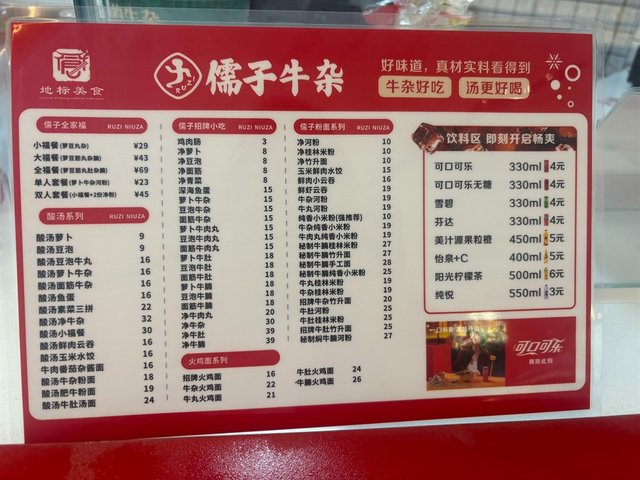 地标美食
儒子牛杂
RUZI
好味道，真材实料看得到
牛杂好吃 汤更好喝
儒子全家福 RUZI NIUZA
小福餐(萝豆丸杂) ¥29
大福餐(萝豆筋丸杂腩) ¥43
全福餐(萝豆筋丸肚杂腩) ¥69
单人套餐(萝卜牛杂河粉) ¥23
双人套餐(小福餐+2份净粉) ¥45
酸汤系列 RUZI NIUZA
酸汤萝卜 9
酸汤豆泡 9
酸汤豆泡牛丸 16
酸汤萝卜牛杂 16
酸汤面筋牛杂 16
酸汤鱼蛋 16
酸汤素菜三拼 22
酸汤净牛杂 32
酸汤小福餐 30
酸汤鲜肉云吞 16
酸汤玉米水饺 16
牛肉番茄杂酱面 16
酸汤牛杂粉面 18
酸汤肥牛粉面 19
酸汤牛肚汤面 24
儒子招牌小吃 RUZI NIUZA
鸡肉肠 3
净萝卜 8
净豆泡 8
净面筋 8
净青菜 8
深海鱼蛋 15
萝卜牛杂 15
豆泡牛杂 15
面筋牛杂 15
萝卜牛肉丸 15
豆泡牛肉丸 15
面筋牛肉丸 15
萝卜牛肚 18
豆泡牛肚 18
面筋牛肚 18
萝卜牛腩 18
豆泡牛腩 18
面筋牛腩 18
净牛肉丸 20
净牛杂 30
净牛肚 39
净牛腩 39
火鸡面系列
招牌火鸡面 16
牛杂火鸡面 22
牛丸火鸡面 21
牛肚火鸡面 24
牛腩火鸡面 26
儒子粉面系列 RUZI NIUZA
净河粉 10
净桂林米粉 10
净竹升面 10
玉米鲜肉水饺 15
鲜肉小云吞 16
鲜虾云吞 19
牛杂河粉 19
牛丸河粉 19
纯香小米粉(强推荐) 10
牛杂纯香小米粉 19
牛肉丸纯香小米粉 19
秘制牛腩桂林粉 27
秘制牛腩竹升面 27
秘制牛腩手工面 28
秘制牛腩纯香小米粉 27
牛丸桂林米粉 19
牛杂桂林米粉 19
招牌牛杂竹升面 20
牛肚河粉 25
牛肚桂林米粉 25
招牌牛肚竹升面 25
秘制焖牛腩河粉 27
饮料区 即刻开启畅爽
可口可乐 330ml 4元
可口可乐无糖 330ml 4元
雪碧 330ml 4元
芬达 330ml 4元
美汁源果粒橙 450ml 5元
怡泉+C 400ml 5元
阳光柠檬茶 500ml 6元
纯悦 550ml 3元
可口可乐